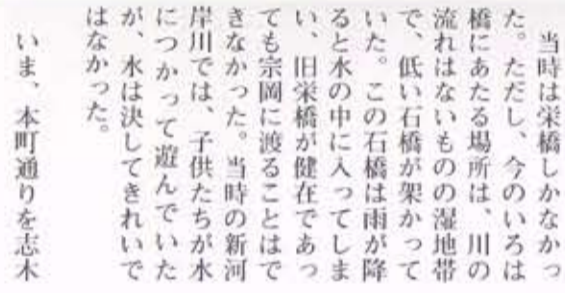 当時は栄橋しかなかっ
た。ただし、今のいろは
橋にあたる場所は、川の
流れはないものの湿地帯
で、低い石橋が架かって
いた。この石橋は雨が降
ると水の中に入ってしま
い、旧栄橋が健在であっ
ても宗岡に渡ることはで
きなかった。当時の新河
岸川では、子供たちが水
につかって遊んでいた
が、水は決してきれいで
はなかった。
いま、本町通りを志木